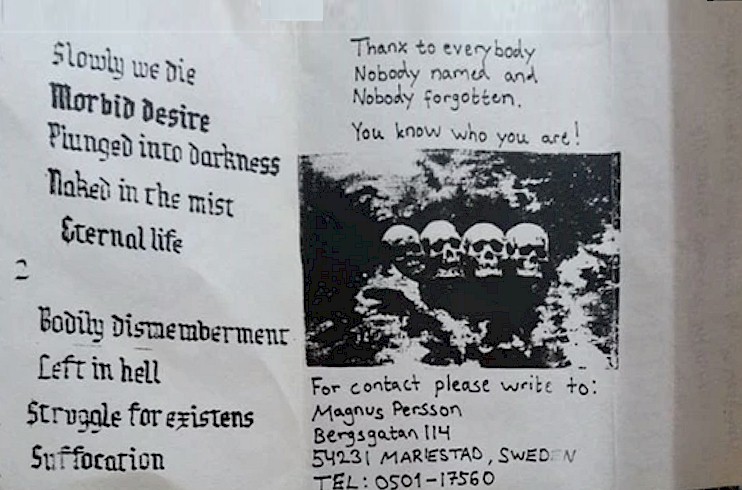 Slowly we die
Morbid desire
Plunged into darkness
Naked in the mist
Eternal life
2
Bodily dismemberment
Left in hell
Struggle for existens
Suffocation
Thanx to everybody
Nobody named and
Nobody forgotten.
You know who you are!
For contact please write to:
Magnus Persson
Bergsgatan 114
54231 MARIESTAD, SWEDEN
TEL: 0501-17560